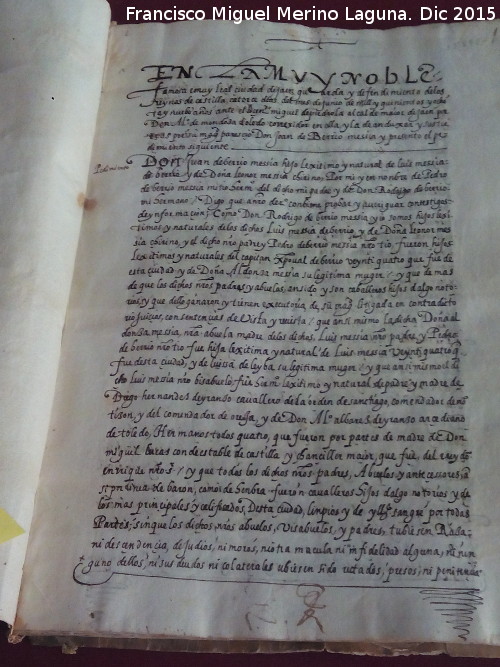 Francisco Miguel Merino Laguna. Dic 2015
EN LA MUY NOBLE
famosa e muy leal ciudad de Jaen guarda y defendimiento de los
Reynos de castilla, catorze dias del mes de junio de mill y quinientos y
y nueve años ante el miguel de alcalde maior de Jaen por
Don mendoza corregidor en ella y la de andujar, y justi
parescio Don Joan de Berrio messia y presento el pe
dimiento siguiente
Pedimiento
DON Juan de berrio messia hijo lexitimo y natural de luis messia
de berrio y de Doña leonor messia Por mi y en nonbre de Pedro
de berrio messia del dicho mi padre y de Don Rodrigo de berrio
mi hermano, Digo que a nro derecho conbiene probar y averiguar con testigos
de ynformacion, Como Don Rodrigo de berrio messia y yo somos hijos lexi
timos y naturales de los dichos Luis messia de berrio, y de Doña leonor mes
sia y el dicho nro padre y Pedro de berrio messia nro tio, fueron hijos
lexitimos y naturales del capitan xpoual de berrio veynti quatro que fue de
esta ciudad y de Doña Aldonsa messia su legitima muger, y que de mas
de que los dichos nros padres y abuelos, an sido y son caballeros hijos dalgo noto
rios, y que dello ganaron y tienen executoria, de su magd litigada en contradito
rio Juicio, con sentencias de vista y revista, que ansi mismo la dicha Doña al
donsa messia, nra abuela madre de los dichos, Luis messia nro padre, y Pedro
de berrio nro tio fue hija lexitima y natural de Luis messia Veynti quatro q
fue desta ciudad, y de luissa de leyba, su legitima muger, y que ansi mismo el di
cho luis messia nro bisabuelo, fue lexitimo y natural de padre y madre de
Diego hernandes de yranso cavallero de la orden de santiago, comendador de mon
tison, y del comendador de oreja, y de Don albares de yranso arcediano
de toledo, Hermanos todos quatro, que fueron por partes de madre de Don
miguel lucas condestable de castilla y chanciller maior, que fue, del rey don
enrrique nro sr, y que todos los dichos nros padres, Abuelos, y antecessores
por linea de baron, como de henbra fueron cavalleros hijos dalgo notorios y de
los mas principales y calificados, desta ciudad, limpios y de sangre por todas
Partes, sin que los dichos, nros abuelos, Visabuelos, y padres, tubiesen Rasa,
ni descendencia, de judios, ni moros, ni otra macula ni infidelidad alguna, ni nin
guno dellos, ni sus deudos ni colaterales ubiesen sido presos, ni